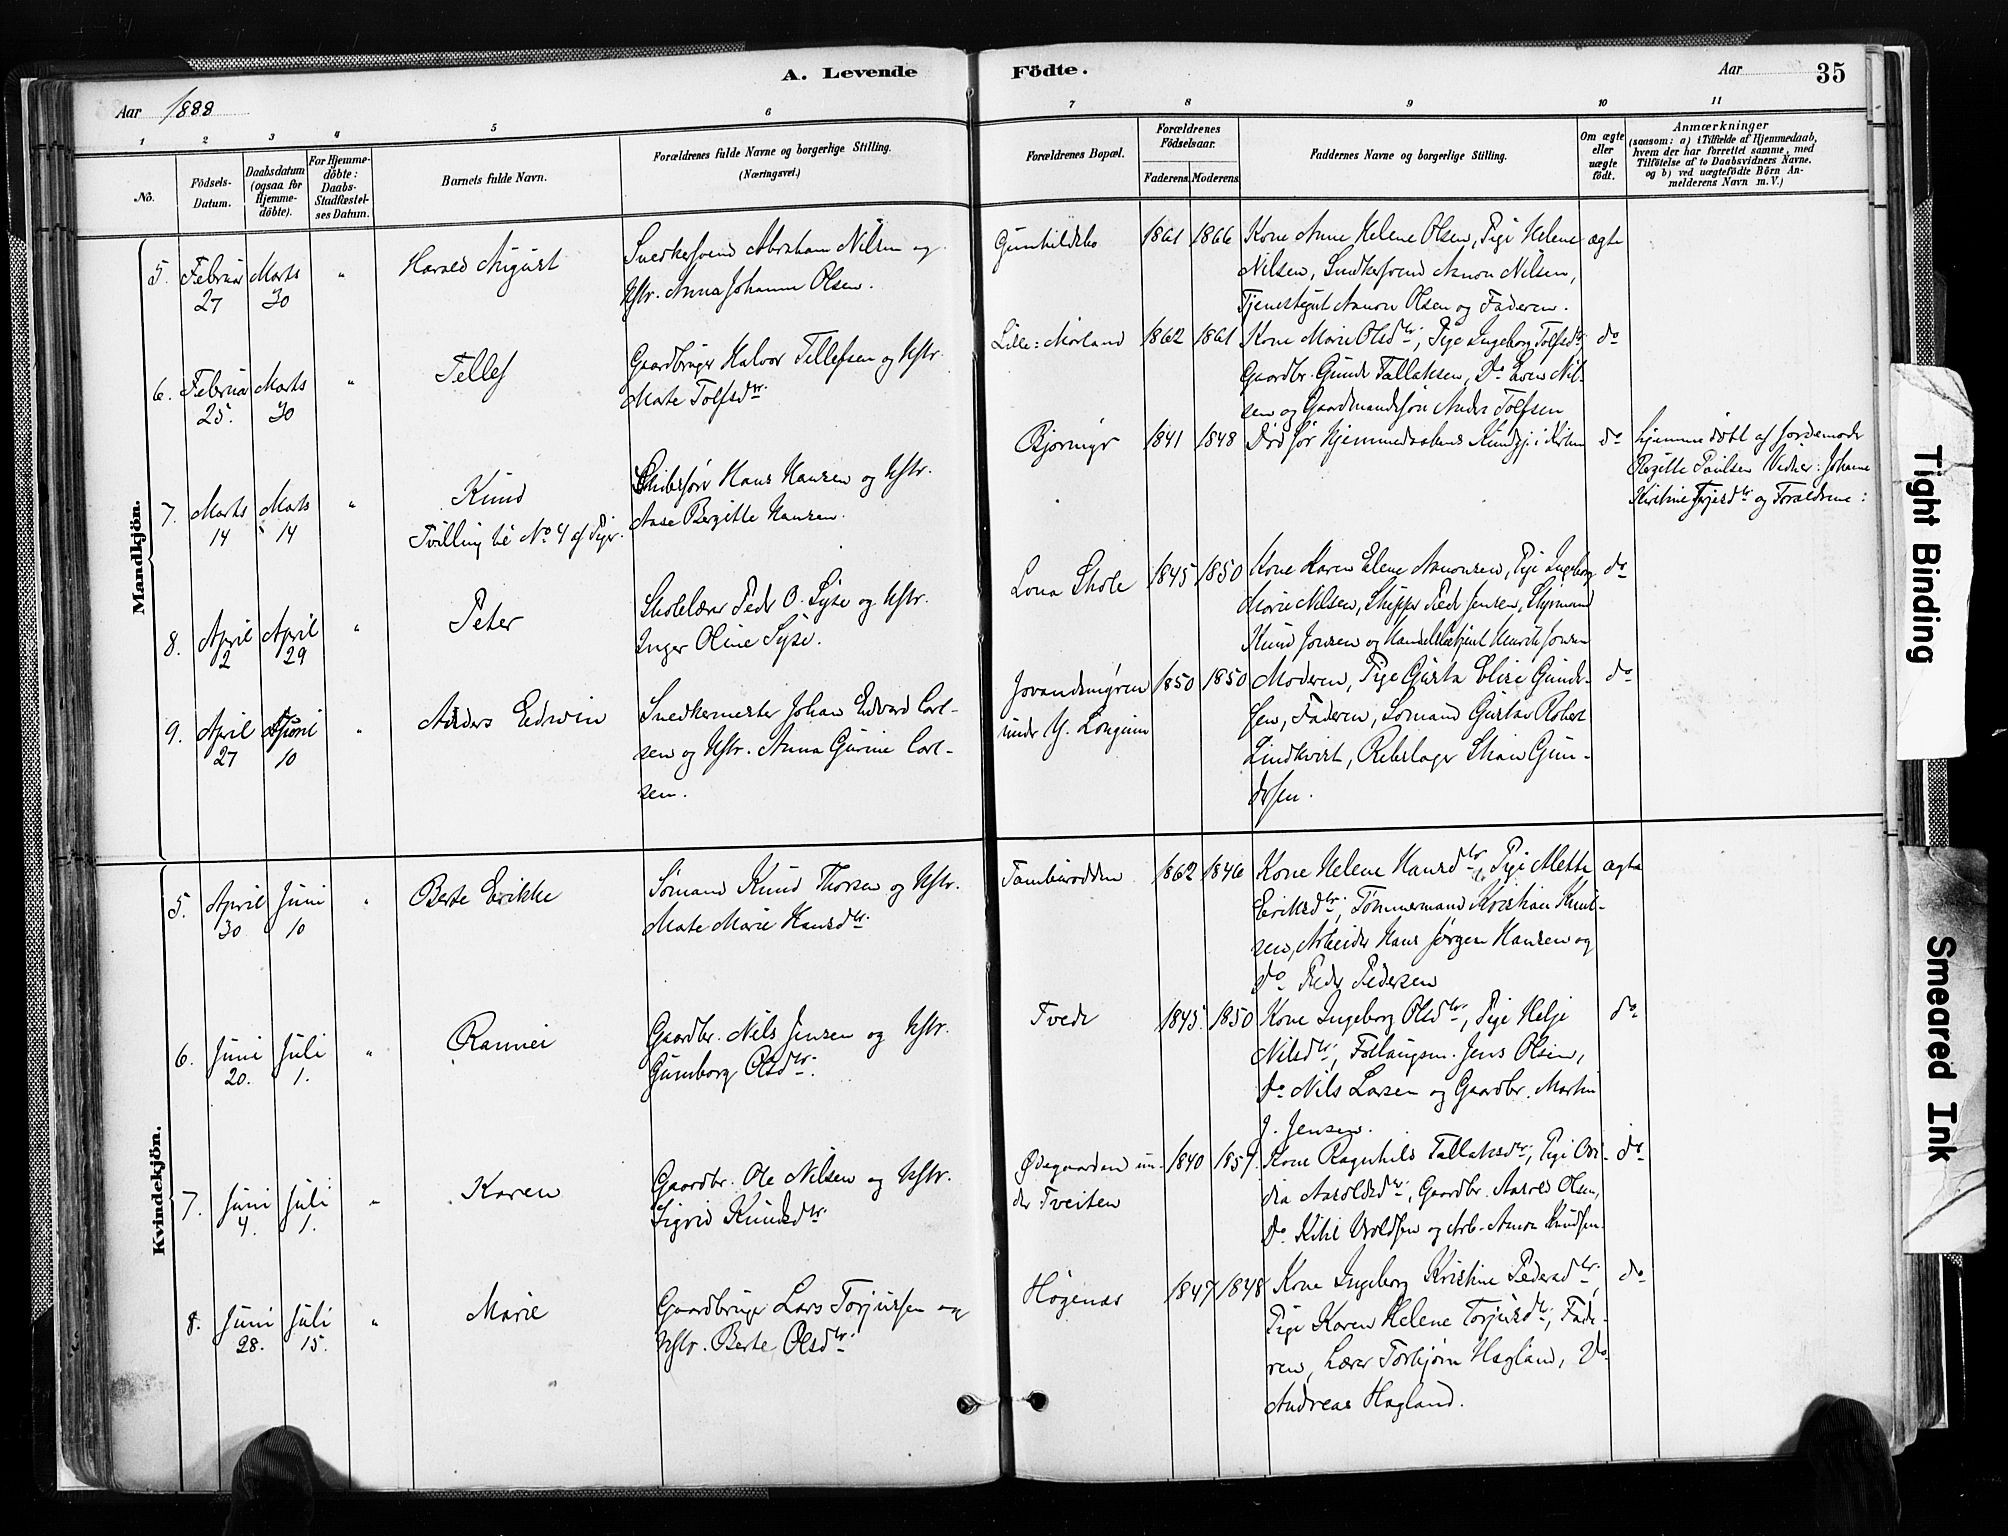 A. Levende
Födte.
Aar 1888
Aar
35
1 2 3 4 5 6 7 8 9 10 11
No.
Födsels-
Datum.
Daabsdatum
(ogsaa for
Hjemme-
döbte).
For Hjemme-
döbte:
Daabs-
Stadfæstel-
ses Datum.
Barnets fulde Navn.
Forældrenes fulde Navne og borgerlige Stilling.
(Næringsvei.)
Forældrenes Bopæl.
Forældrenes
Födselsaar.
Faderens. Moderens.
Faddernes Navne og borgerlige Stilling.
Om ægte
eller
uægte
födt.
Anmærkninger
(saasom: a) i Tilfælde af Hjemmedaab,
hvem der har forrettet samme, med
Tilföielse af to Daabsvidners Navne,
og b) ved uægtefödte Börn An-
melderens Navn m. V.)
Mandkjön.
5. Februar 27 Marts 30 " Harald August
Snedkersvend Abraham Nilsen og
Hstr. Anna Johanne Olsen.
Gunhildsbo 1861 1866
Kone Anne Helene Olsen, Pige Helene
Nilsen, Snedkersvend Aanon Nilsen,
Tjenestegut Aanon Olsen og Faderen.
ægte
6. Februar 25. Marts 30 " Tellef
Gaardbruger Halvor Tellefsen og Hstr.
Mate Tolfsdtr.
Lille: Mørland 1862 1861
Kone Marie Olsdtr, Pige Ingeborg Tolfsdtr
Gaardbr. Gunde Tallaksen, Do Lars Nil-
sen og Gaardmandssøn Anders Tolfsen
do
7. Marts 14 Marts 14 " Knud
Tvilling til No 4 af Piger.
Hans Hansen og Hstr.
Aase Bergitte Hansen.
Bjørmyr 1841 1848
Død før Hjemmedaabens Kundgj. i Kirken
do
hjemmedøbt af Jordemoder
Regitte Paulsen Vidner: Johanne
Kirstine Terjesdtr og Forældrene:
8. April 2 April 29 " Peter
Skolelærer Peder O. Lyse og Hstr.
Inger Oline Lyse.
Lona Skole 1845 1850
Kone Karen Elene Aanonsen, Pige Ingeborg
Marie Nilsen, Skipper Peder Jensen, Styrmand
Knud Jensen og Handelsbetjent Jensen
do
9. April 27 Juni 10 " Anders Edwin
Snedkermester Johan Edvard Carl-
sen og Hstr. Anna Gurine Carl-
sen.
Jovandsmyren
under Y. Longum 1850 1850
Moderen, Pige Gusta Elise Gunder-
sen, Faderen, Sømand Gustav Robert
Lindkvist, Rebslager Gun-
dersen.
do
Kvindekjön.
5. April 30 Juni 10 " Berte Erikke
Sømand Knud Thorsen og Hstr.
Mate Marie Hansdtr.
Tambarodden 1862 1846
Kone Helene Hansdtr, Pige Mette
Eriksdtr, Tømmermand Kristian Knut-
sen, Arbeider Hans Jørgen Hansen og
do Peder Pedersen
ægte
6. Juni 20. Juli 1. " Rannei
Gaardbr. Nils Jensen og Hstr.
Gunborg Olsdtr.
Tvede 1845 1850
Kone Ingeborg Olsdtr, Pige Helje
Nilsdtr, Føllaugsm. Jens Olsen,
Do Nils Larsen og Gaardbr. Martin
J. Jensen.
do
7. Juni 4. Juli 1. " Karen
Gaardbr. Ole Nilsen og Hstr.
Sigrid Knudsdtr.
Ødegaarden un-
der Tveiten 1840 1857
Kone Ragnhild Tallaksdtr, Pige Ovi-
dia Aaroldsdtr, Gaardbr. Aarold Olsen,
Do Kittel Aroldsen og Arb. Aanon Knudsen.
do
8. Juni 28. Juli 15. " Marie
Gaardbruger Lars Torjussen og
Hstr. Berte Olsdtr.
Høgenæs 1847 1848
Kone Ingeborg Kristine Pedersdtr,
Pige Karen Helene Torjusdtr, Fade-
ren, Lærer Torbjørn Hagland, Do
Andreas Hagland.
do
Tight Binding
Smeared Ink